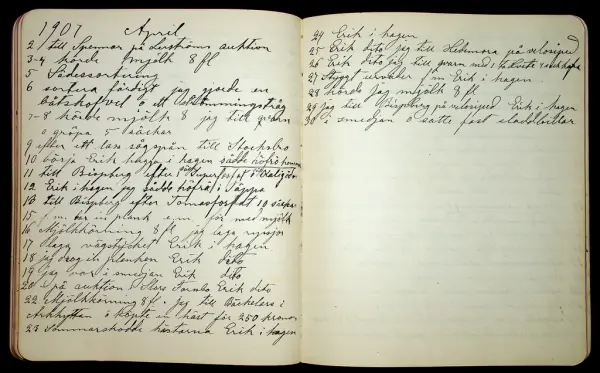 1907 April
2 till Spennar på auktion
3-4 körde mjölk 8 fl
5 Sädessortering
6 sortera färdigt jag gjorde en
båtshofvel o ett tråg
7-8 körde mjölk 8 jag till qvarn
o gröpa 5 säckar
9 efter ett lass sågspån till Stocksbro
10 börja Erik i hagen sådde höfrö hemma
11 till Bispberg efter Superfosfat
12 Erik i hagen jag sådde höfrö i Täppa
13 till Bispberg efter Tomasfosfat 19 säckar
15 f.m. bar in plank e.m. för med mjölk
16 Mjölkkörning 8 fl jag laga
17 laga vägstycket Erik i hagen
18 jag drog ih planken Erik dito
19 jag var i smedjan Erik dito
20 på auktion Stora Fornbo Erik dito
22 Mjölkkörning 8 fl. jag till Bäckelers i
Arkhyttan o köpte en häst för 250 kronor
23 Sommarskodde hästarna Erik i hagen
24 Erik i hagen
25 Erik dito jag till Hedemora på velosiped
26 Erik dito jag till qvarn med 1
27 Styggt uteväder f.m. Erik i hagen
28 körde jag mjölk 8 fl
29 jag till Bispberg på velosiped Erik i hagen
30 i smedjan o satte fast